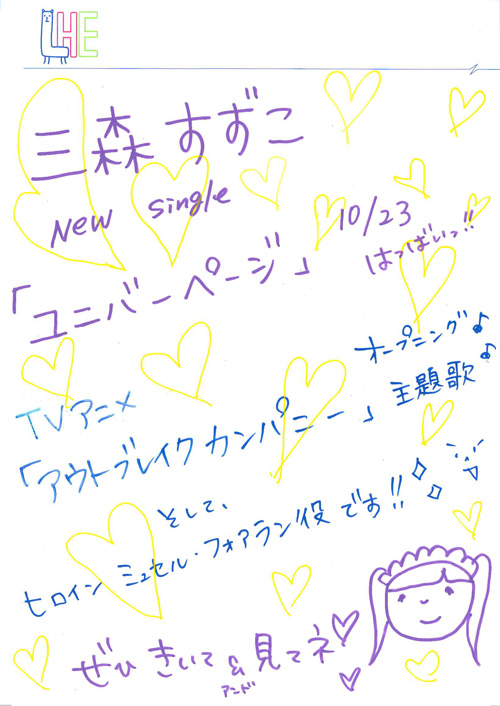 LHE
三森すずこ
New single
10/23
はっばいっ!!
「ユニバーページ」
オープニング♪
主題歌♪
TVアニメ
「アウトブレイクカンパニー」
そして、
ヒロイン ミュセル・フォアラン役です!!
ぜひ きいて & 見てネ
アンド